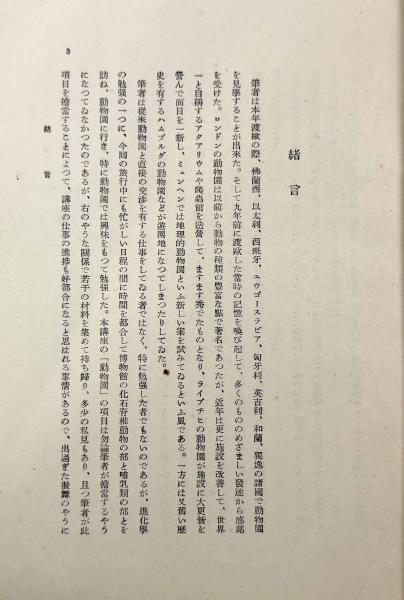 緒言
筆者は本年渡歐の際、佛蘭西、以太利、西班牙、ユウゴースラビア、匈牙利、英吉利、和蘭、獨逸の諸國で動物園
を見學することが出來た。そして九年前に渡歐した當時の記憶を喚び起して、多くのもののめざましい發達から感銘
を受けた。ロンドンの動物園は以前から動物の種類の豊富な點で著名であつたが、近年は更に施設を改善して、世界
一と自稱するアクアリウムや爬蟲館を造營して、ますます秀でたものとなり、ライプチヒの動物園が施設に大更新を
營んで面目を一新し、ミュンヘンでは地理的動物園といふ新しい案を試みてゐるといふ風である。一方には又舊い歷
史を有するハムブルグの動物園などが遊園地になつてしまつたりしてゐた。
筆者は從來動物園と直接の交渉を有する仕事をしてゐる者ではなく、特に勉強した者でもないのであるが、進化學
の勉强の一つに、今囘の旅行中にも忙がしい日程の間に時間を都合して博物館の化石脊椎動物の部と哺乳類の部とを
訪ね、動物園に行き、特に動物園では興味をもつて勉强した。本講座の「動物園」の項目は勿論筆者が擔當するやう
になつてゐなかつたのであるが、右のやうな關係で若干の材料を集めて持ち歸り、多少の私見もあり、且つ筆者が此
項目を擔當することによつて、講座の仕事の進捗も好都合になると思はれる事情があるので、出過ぎた振舞のやうに
緒言
3